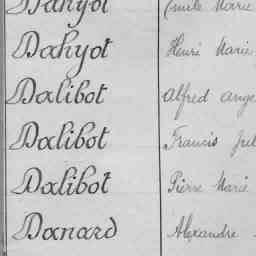 Dahyot Emile Marie
Dahyot Henri Marie
Dalibot Alfred Ange
Dalibot Francis Jul
Dalibot Pierre Marie
Danard Alexandre